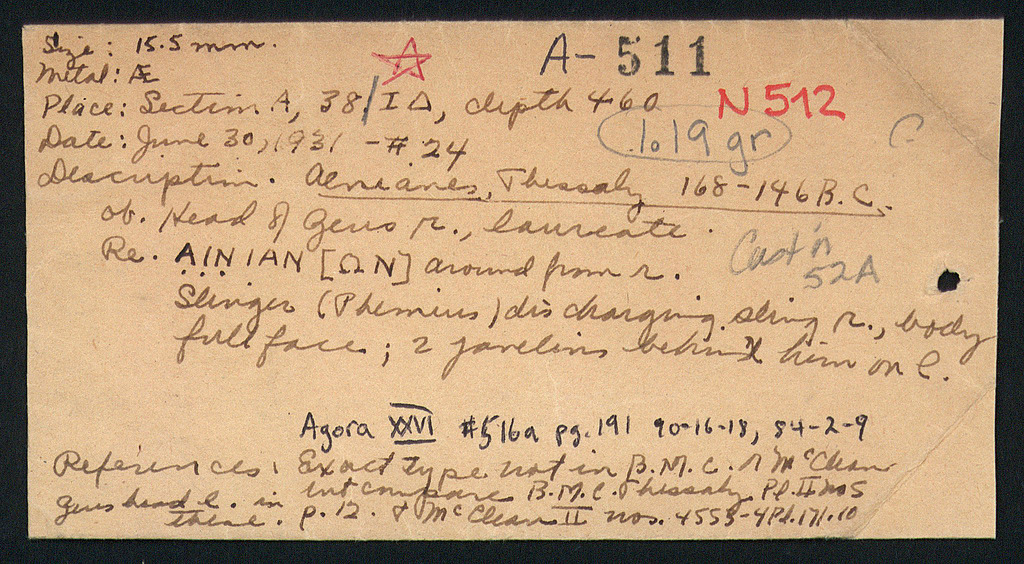 Size: 15.5 mm.
A- 511
Metal: Æ
Place: Section A, 38/ΙΔ, depth 460
N 512
Date: June 30, 1931 - #24
1.19 gr
C
Description. Aenianes, Thessaly 168-146 B.C.
ob. Head of Zeus r., laureate.
Re. ΑΙΝΙΑΝ [ΩΝ] around from r.
Cast'n 52A
Slinger (Phemius) discharging sling r., body
full face; 2 javelins behind him on l.
Agora XXVI #516a pg. 191 90-16-18, 84-2-9
References: Exact type not in B.M.C. or McClean
but compare B.M.C. Thessaly Pl. II no 5
Zeus head l. in these. p. 12. & McClean II nos. 4553-4 Pl. 171.10